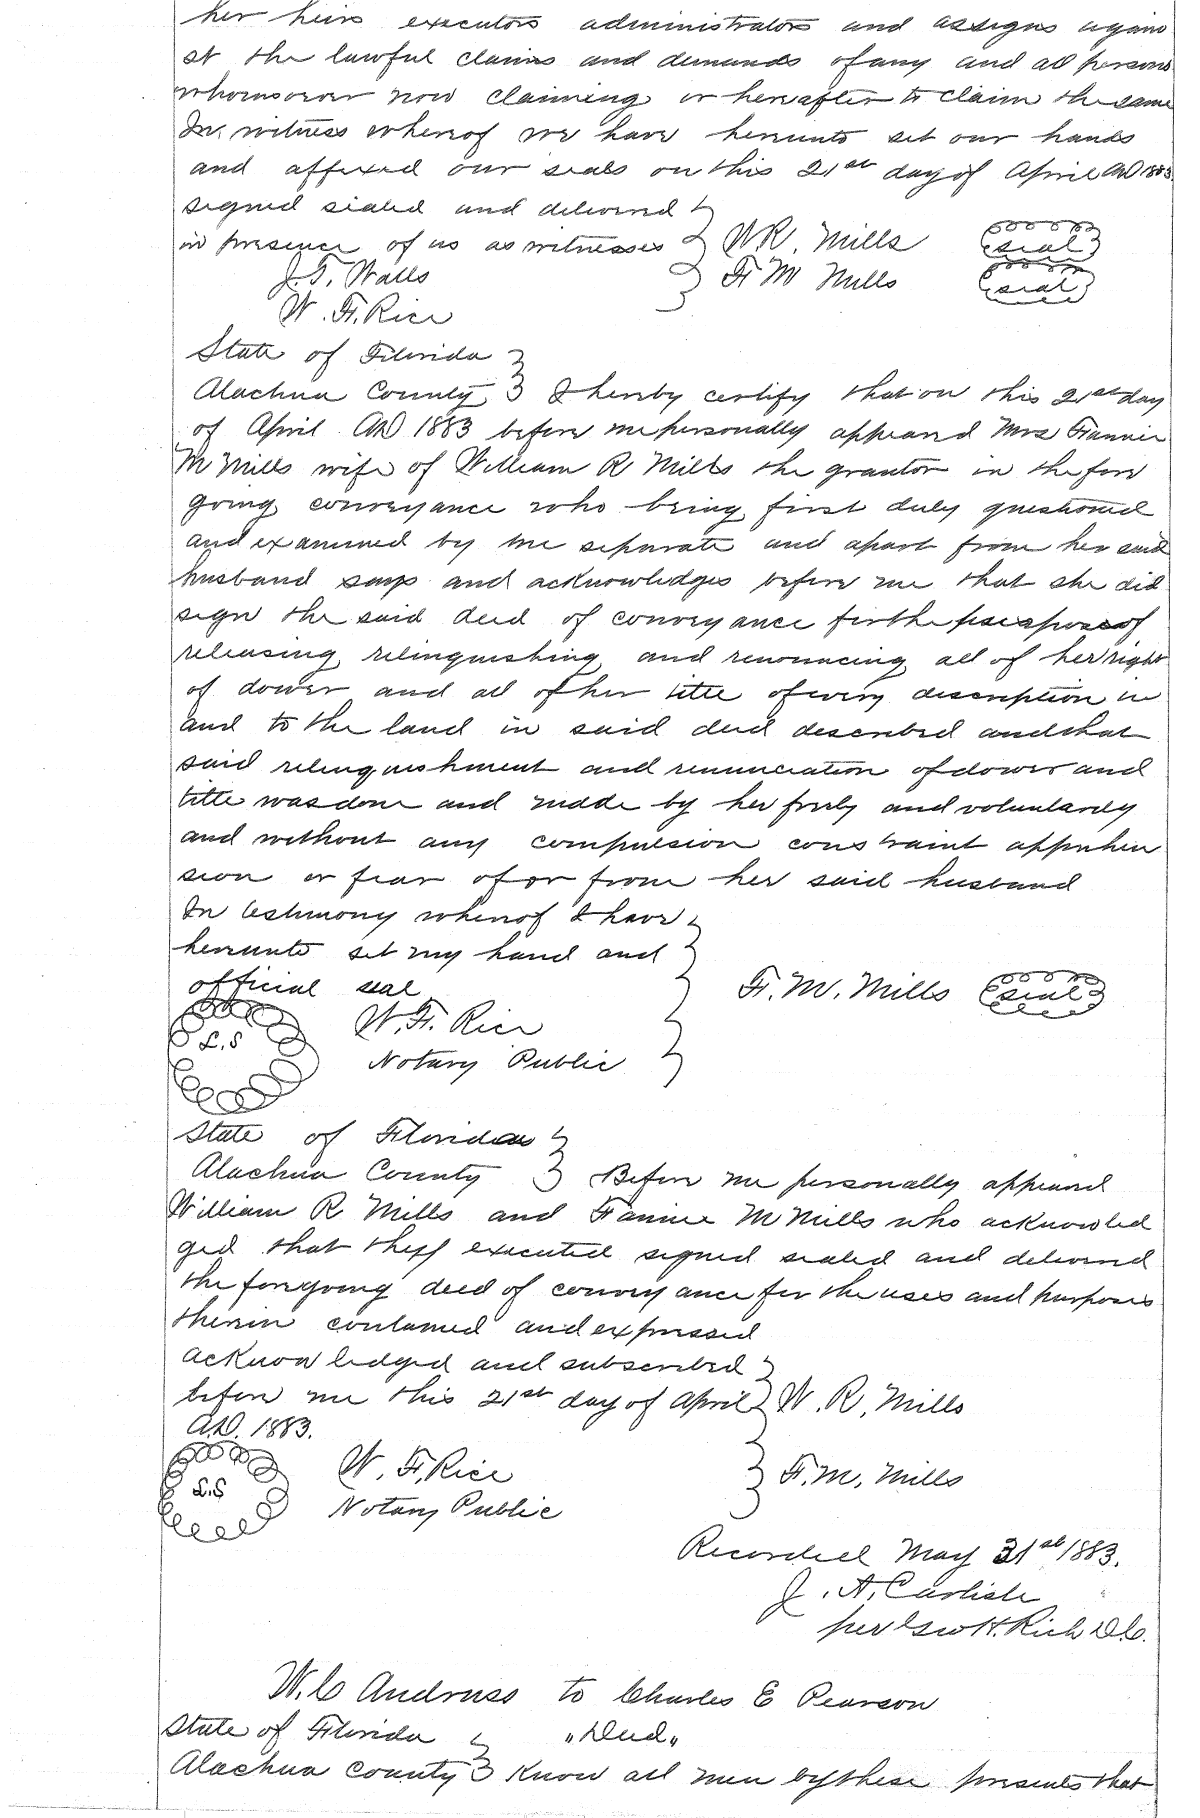 her heirs executors administrators and assigns again
st the lawful claims and demands of any and all persons
whomsoever now claiming or hereafter to claim the same
In witness whereof we have hereunto set our hands
and affixed our seals on this 21st day of April AD 1883
signed sealed and delivered
in presence of us as witnesses W.R. Mills seal
J.T. Walls F M Mills seal
W. F. Rice
State of Florida
Alachua County I hereby certify that on this 21st day
of April AD 1883 before me personally appeared Mrs Fannie
M Mills wife of William R Mills the grantor in the fore
going conveyance who being first duly questioned
and examined by me separate and apart from her said
husband says and acknowledges before me that she did
sign the said deed of conveyance for the purpose of
releasing relinquishing and renouncing all of her right
of dower and all of her title of every description in
and to the land in said deed described and that
said relinquishment and renunciation of dower and
title was done and made by her freely and voluntarily
and without any compulsion constraint apprehen
sion or fear of or from her said husband
In testimony whereof I have
hereunto set my hand and
official seal F. M. Mills seal
L.S W. F. Rice
Notary Public
State of Florida
Alachua County Before me personally appeared
William R Mills and Fannie M Mills who acknowled
ged that they executed signed sealed and delivered
the foregoing deed of conveyance for the uses and purposes
therein contained and expressed
acknowledged and subscribed
before me this 21st day of April W. R. Mills
A.D. 1883.
L.S W. F. Rice F. M. Mills
Notary Public
Recorded May 31st 1883.
J. A. Carlisle
per Geo H. Rich D.C.
W. C Andruss to Charles E Pearson
State of Florida "Deed"
Alachua County Know all men by these presents that